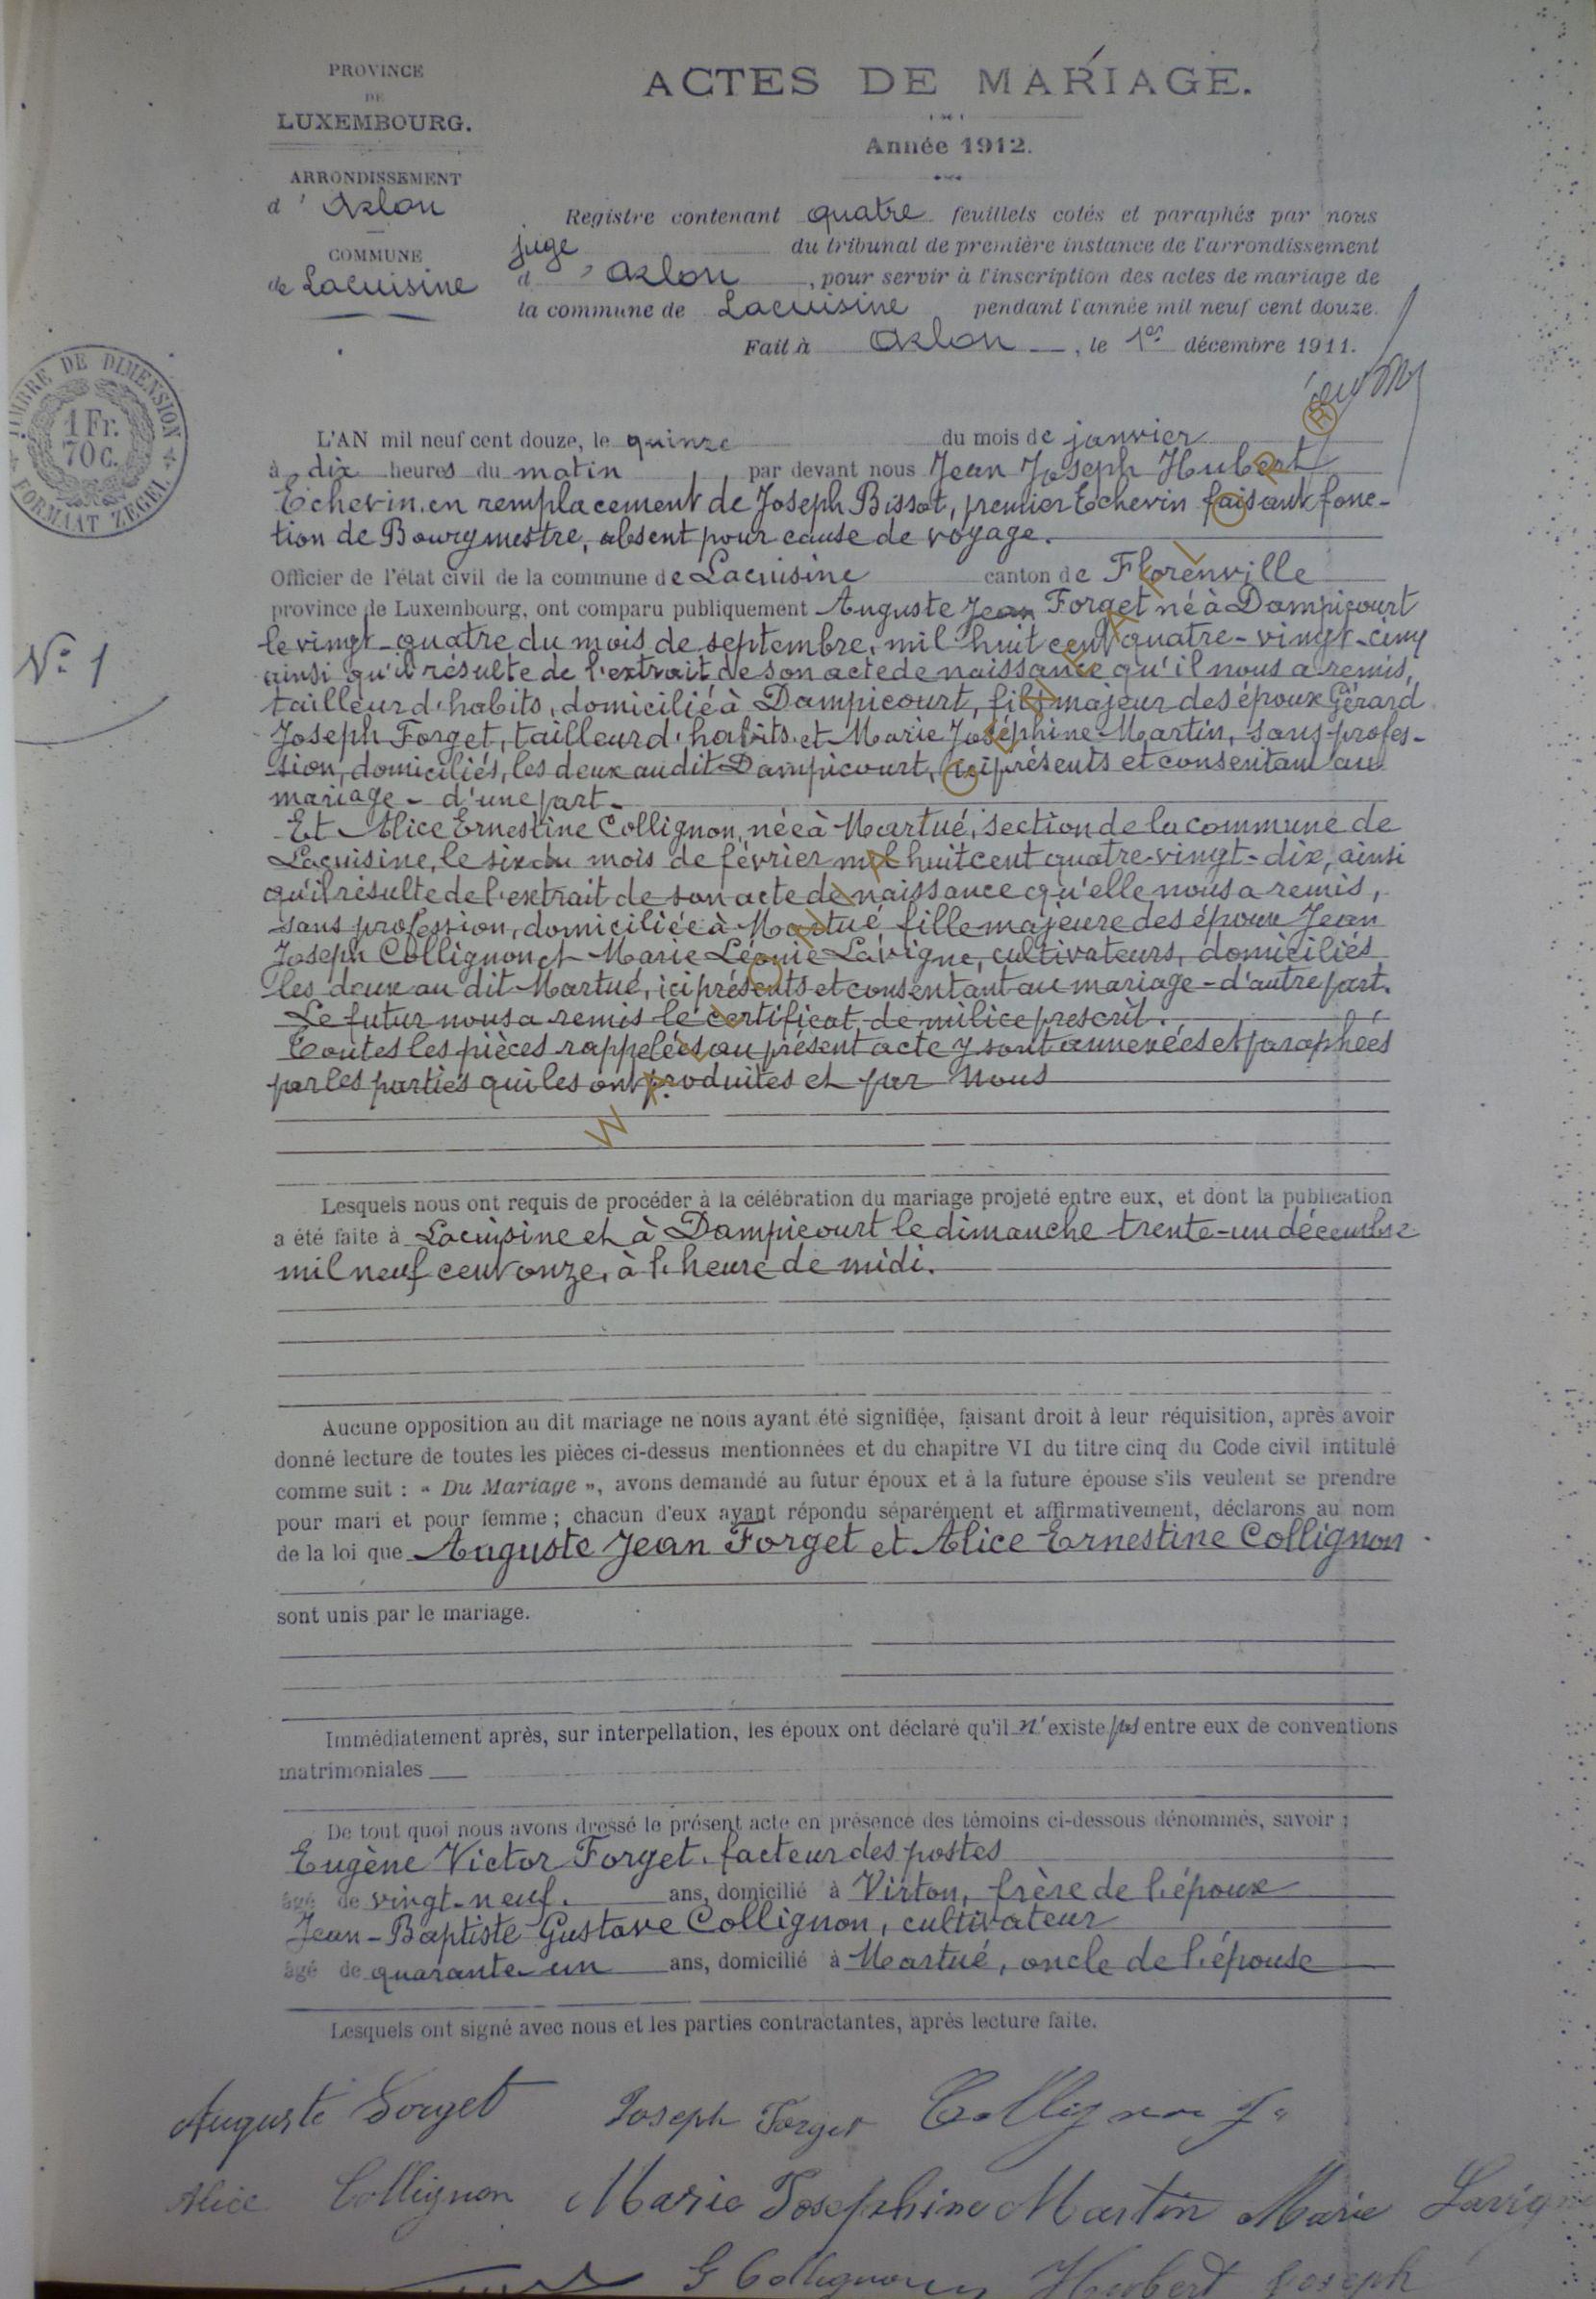 PROVINCE
DE
LUXEMBOURG.
ARRONDISSEMENT
d'Arlon
COMMUNE
de Lacuisine
ACTES DE MARIAGE.
Année 1912.
Registre contenant quatre feuillets cotés et paraphés par nous
juge du tribunal de première instance de l'arrondissement
d'Arlon, pour servir à l'inscription des actes de mariage de
la commune de Lacuisine pendant l'année mil neuf cent douze.
Fait à Arlon, le 1er décembre 1911.
TIMBRE DE DIMENSION
1 Fr.
70 c.
FORMAAT ZEGEL
N° 1
L'AN mil neuf cent douze, le quinze du mois de janvier
à dix heures du matin, par devant nous Jean Joseph Hubert
Echevin, en remplacement de Joseph Bissot, premier Echevin faisant fonc-
tion de Bourgmestre, absent pour cause de voyage.
Officier de l'état civil de la commune de Lacuisine canton de Florenville
province de Luxembourg, ont comparu publiquement Auguste Jean Forget né à Dampicourt
le vingt-quatre du mois de septembre, mil huit cent quatre-vingt-cinq
ainsi qu'il résulte de l'extrait de son acte de naissance qu'il nous a remis,
tailleur d'habits, domicilié à Dampicourt, fils majeur des époux Gérard
Joseph Forget, tailleur d'habits et Marie Joséphine Martin, sans profes-
sion, domiciliés, les deux au dit Dampicourt, ici présents et consentant au
mariage - d'une part.
Et Alice Ernestine Collignon, née à Martué, section de la commune de
Lacuisine, le six du mois de février mil huit cent quatre-vingt-dix, ainsi
qu'il résulte de l'extrait de son acte de naissance qu'elle nous a remis,
sans profession, domiciliée à Martué fille majeure des époux Jean
Joseph Collignon et Marie Léonie Lavigne, cultivateurs, domiciliés
les deux au dit Martué, ici présents et consentant au mariage - d'autre part.
Le futur nous a remis le certificat de milice prescrit.
Toutes les pièces rappelées au présent acte y sont annexées et paraphées
par les parties qui les ont produites et par Nous
Lesquels nous ont requis de procéder à la célébration du mariage projeté entre eux, et dont la publication
a été faite à Lacuisine et à Dampicourt le dimanche trente-un décembre
mil neuf cent onze, à l'heure de midi.
Aucune opposition au dit mariage ne nous ayant été signifiée, faisant droit à leur réquisition, après avoir
donné lecture de toutes les pièces ci-dessus mentionnées et du chapitre VI du titre cinq du Code civil intitulé
comme suit : « Du Mariage », avons demandé au futur époux et à la future épouse s'ils veulent se prendre
pour mari et pour femme ; chacun d'eux ayant répondu séparément et affirmativement, déclarons au nom
de la loi que Auguste Jean Forget et Alice Ernestine Collignon
sont unis par le mariage.
Immédiatement après, sur interpellation, les époux ont déclaré qu'il n'existe pas entre eux de conventions
matrimoniales
De tout quoi nous avons dressé le présent acte en présence des témoins ci-dessous dénommés, savoir :
Eugène Victor Forget, facteur des postes
âgé de vingt-neuf ans, domicilié à Virton, frère de l'époux
Jean-Baptiste Gustave Collignon, cultivateur
âgé de quarante-un ans, domicilié à Martué, oncle de l'épouse
Lesquels ont signé avec nous et les parties contractantes, après lecture faite.
Auguste Forget Joseph Forget Collignon J.
Alice Collignon Marie Josephine Martin Marie Lavigne
G Collignon Hubert Joseph